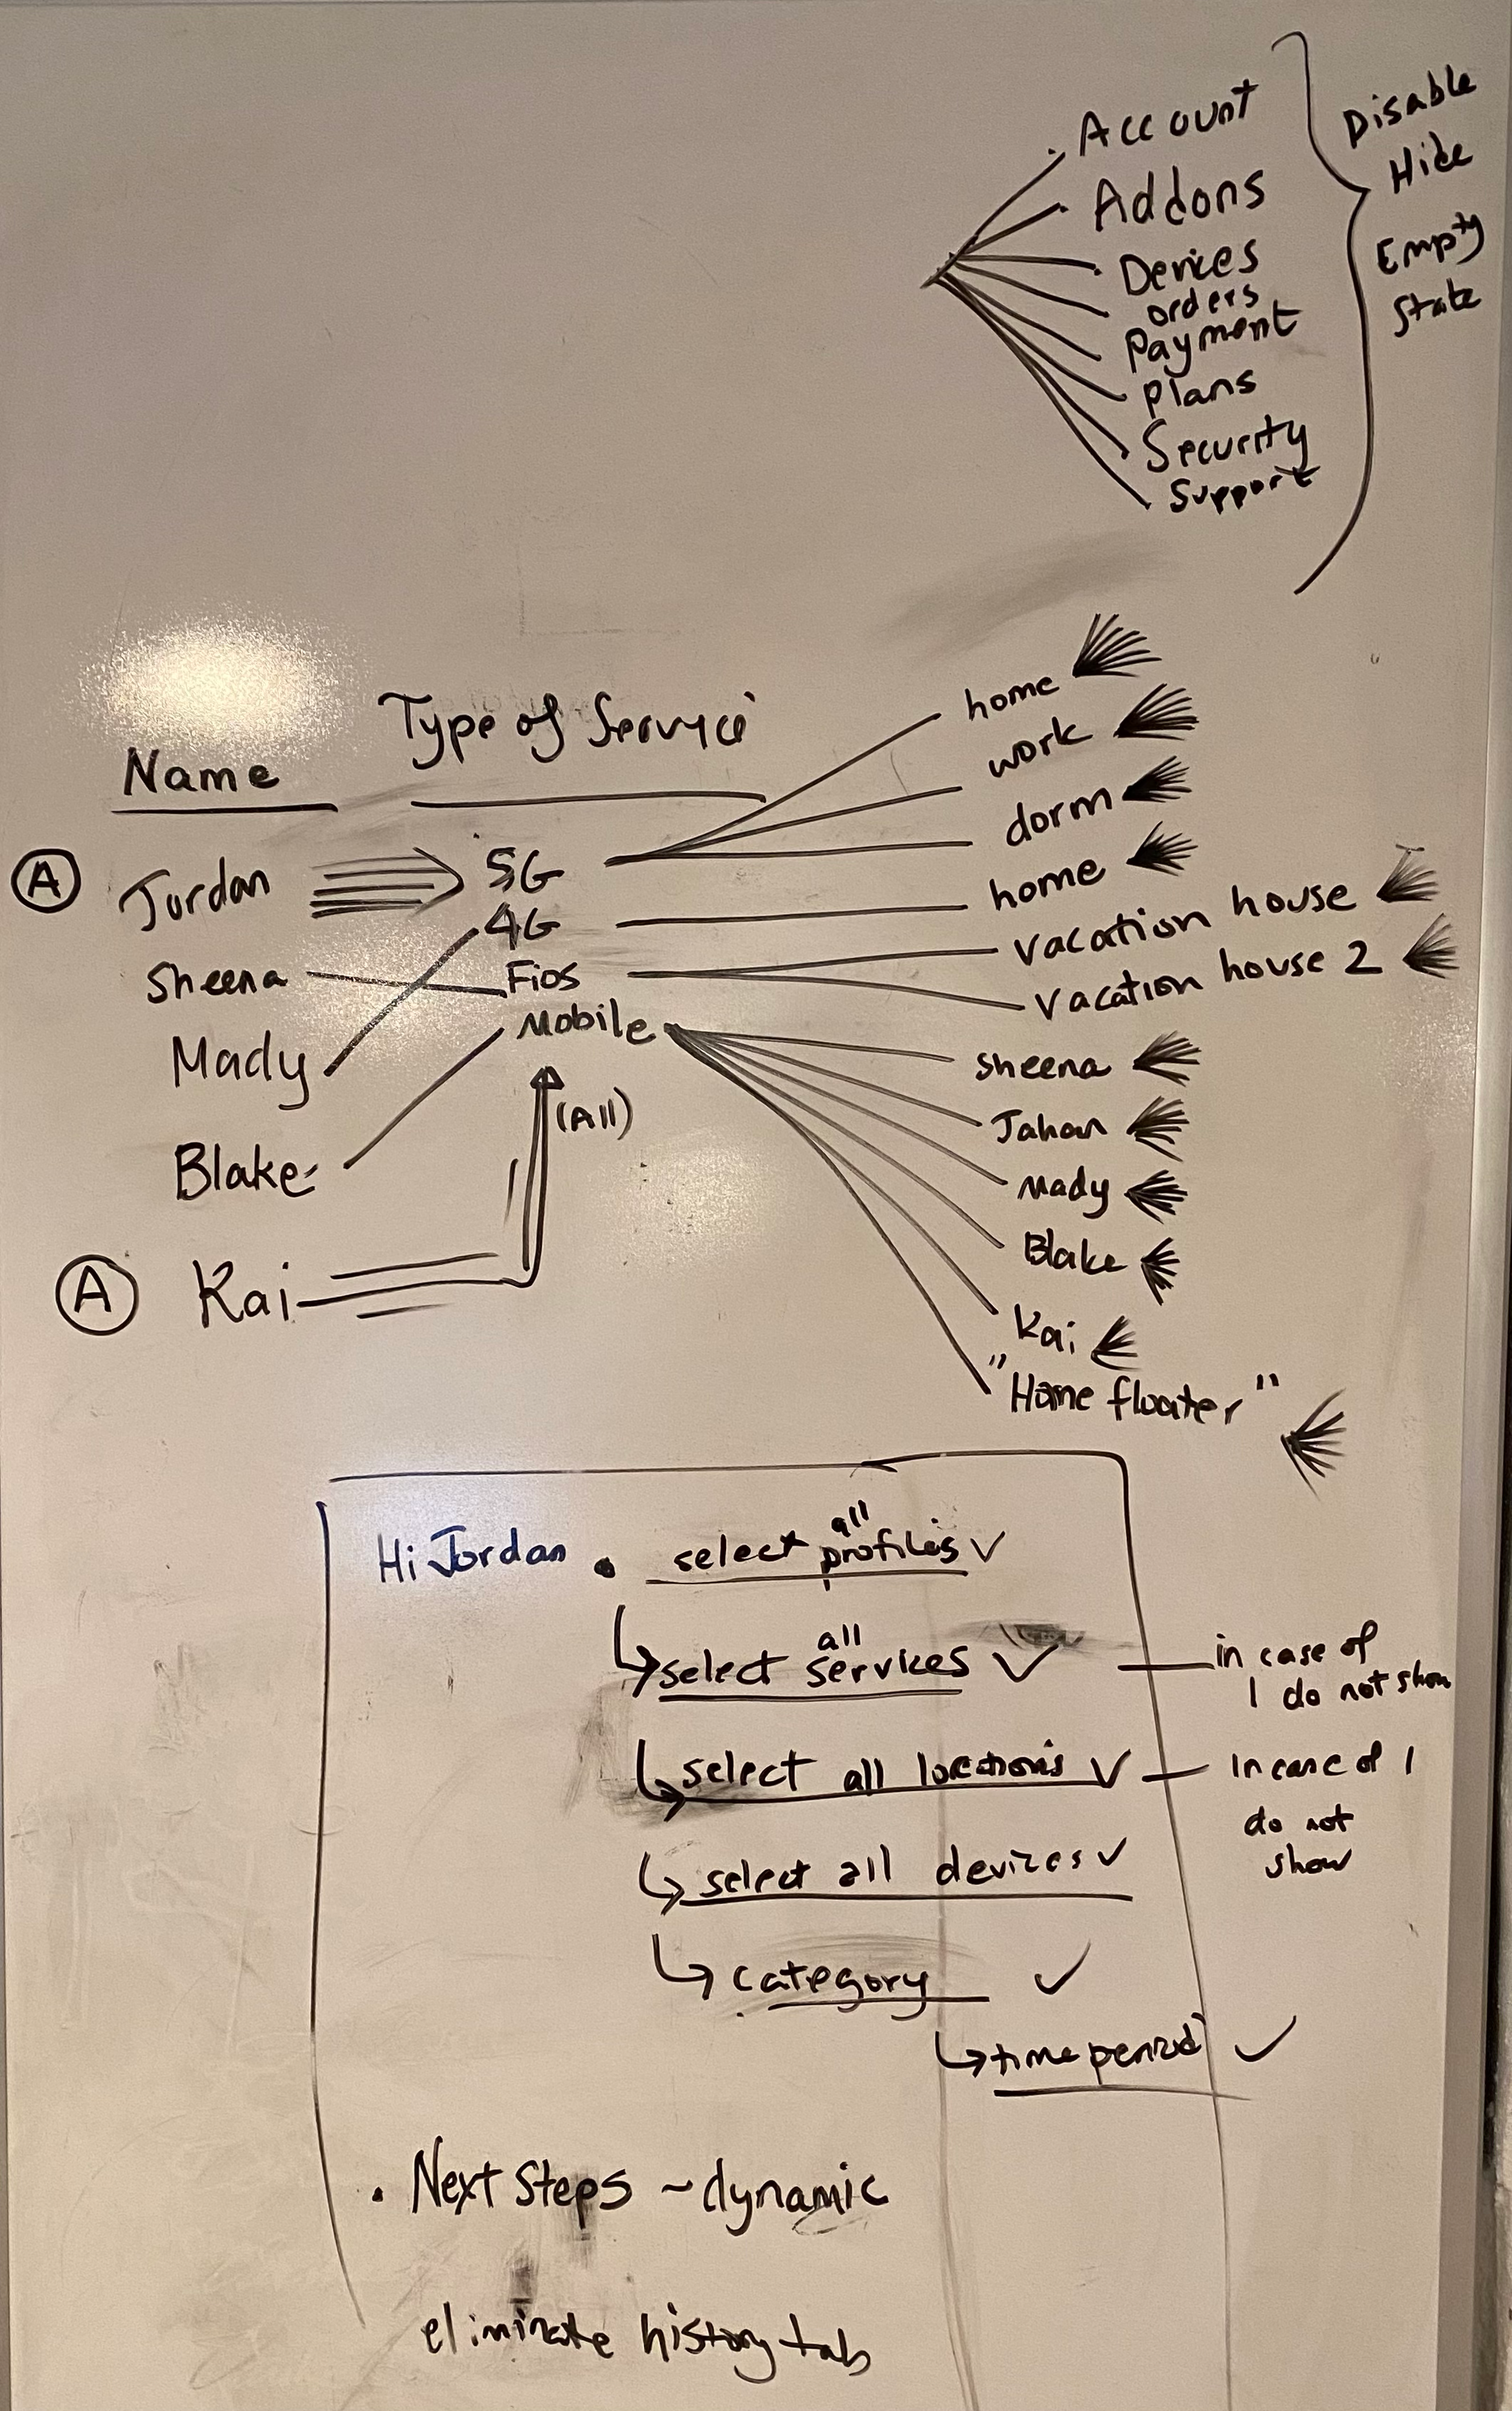 Account
Addons
Devices
orders
Payment
plans
Security
Support
Disable
Hide
Empty
State
Name
Type of Service
A Jordan
Sheena
Mady
Blake
A Kai
5G
4G
Fios
Mobile
(All)
home
work
dorm
home
vacation house
vacation house 2
Sheena
Jahan
Mady
Blake
Kai
"Home floater"
Hi Jordan • select all profiles ✓
select all services ✓
in case of
1 do not show
select all locations ✓
in case of 1
do not
show
select all devices ✓
category ✓
time period ✓
• Next Steps ~ dynamic
eliminate history tab